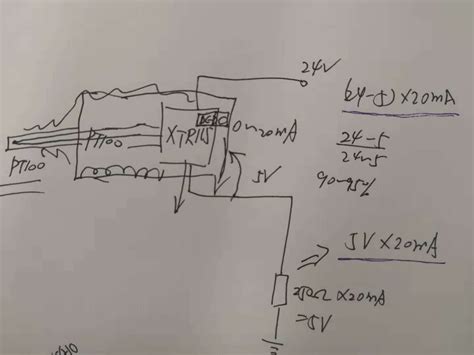 24V
(24-5)×20mA
PT100
XTR115
0~20mA
24-5
24~5
PT100
5V
90-95%
5V×20mA
250Ω×20mA
=5V